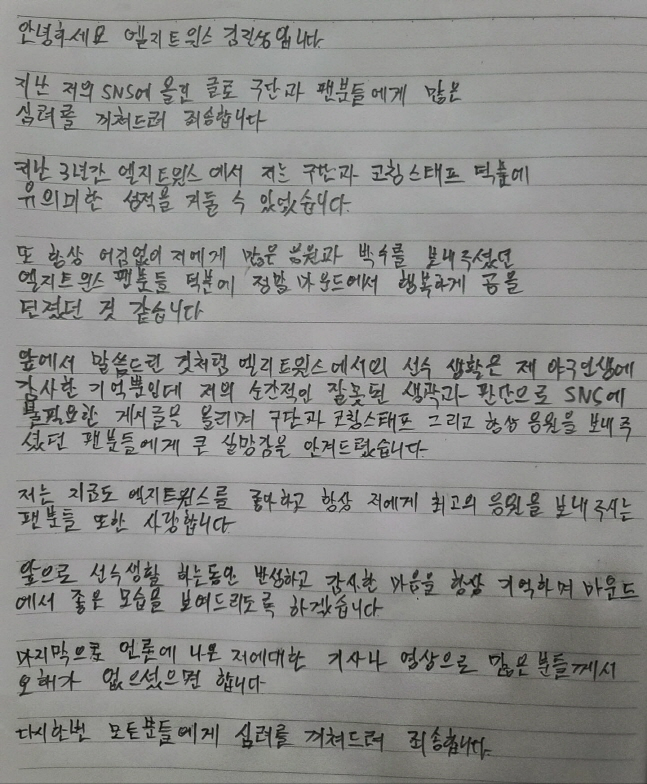 안녕하세요 엘지트윈스 김진성입니다.
지난 저의 SNS에 올린 글로 구단과 팬분들에게 많은
심려를 끼쳐드려 죄송합니다
지난 3년간 엘지트윈스에서 저는 구단과 코칭스태프 덕분에
유의미한 성적을 거둘 수 있었습니다.
또 항상 어김없이 저에게 많은 응원과 박수를 보내주셨던
엘지트윈스 팬분들 덕분에 정말 마운드에서 행복하게 공을
던졌던 것 같습니다
앞에서 말씀드린 것처럼 엘리트윈스에서의 선수 생활은 제 야구인생에
감사한 기억뿐인데 저의 순간적인 잘못된 생각과 판단으로 SNS에
불필요한 게시글을 올리며 구단과 코칭스태프 그리고 항상 응원을 보내주
셨던 팬분들에게 큰 실망감을 안겨드렸습니다.
저는 지금도 엘지트윈스를 좋아하고 항상 저에게 최고의 응원을 보내주시는
팬분들 또한 사랑합니다.
앞으로 선수생활 하는동안 반성하고 감사한 마음을 항상 기억하며 마운드
에서 좋은 모습을 보여드리도록 하겠습니다
마지막으로 언론에 나온 저에대한 기사나 영상으로 많은분들께서
오해가 없으셨으면 합니다
다시한번 모든분들에게 심려를 끼쳐드려 죄송합니다.